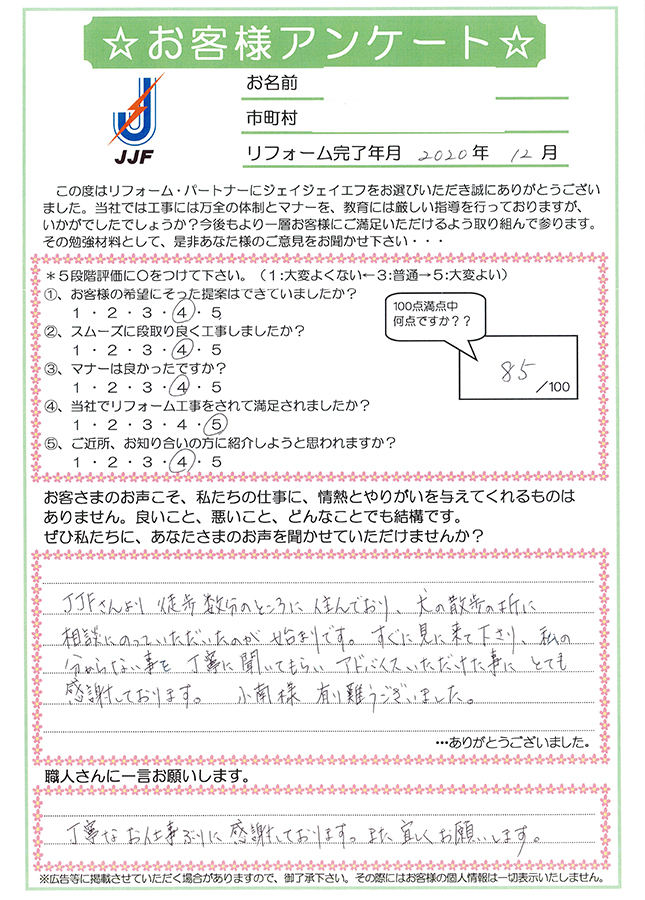 ☆お客様アンケート☆
JJF
お名前
市町村
リフォーム完了年月 2020年 12月
この度はリフォーム・パートナーにジェイジェイエフをお選びいただき誠にありがとうござい
ました。当社では工事には万全の体制とマナーを、教育には厳しい指導を行っておりますが、
いかがでしたでしょうか？今後もより一層お客様にご満足いただけるよう取り組んで参ります。
その勉強材料として、是非あなた様のご意見をお聞かせ下さい・・・
＊５段階評価に〇をつけて下さい。（１:大変よくない←３:普通→５:大変よい）
①、お客様の希望にそった提案はできていましたか？
１・２・３・４・５
②、スムーズに段取り良く工事しましたか？
１・２・３・４・５
③、マナーは良かったですか？
１・２・３・４・５
④、当社でリフォーム工事をされて満足されましたか？
１・２・３・４・５
⑤、ご近所、お知り合いの方に紹介しようと思われますか？
１・２・３・４・５
100点満点中
何点ですか？？
85/100
お客さまのお声こそ、私たちの仕事に、情熱とやりがいを与えてくれるものは
ありません。良いこと、悪いこと、どんなことでも結構です。
ぜひ私たちに、あなたさまのお声を聞かせていただけませんか？
JJFさんより 徒歩数分のところに 住んでおり、犬の散歩の折に
相談にのっていただいたのが 始まりです。すぐに見に来て下さり、私の
分からない事を 丁寧に聞いてもらい アドバイスいただけた事に とても
感謝しております。 小南様 有り難うございました。
…ありがとうございました。
職人さんに一言お願いします。
丁寧な お仕事ぶりに 感謝しております。また 宜しくお願いします。
※広告等に掲載させていただく場合がありますので、御了承下さい。その際にはお客様の個人情報は一切表示いたしません。